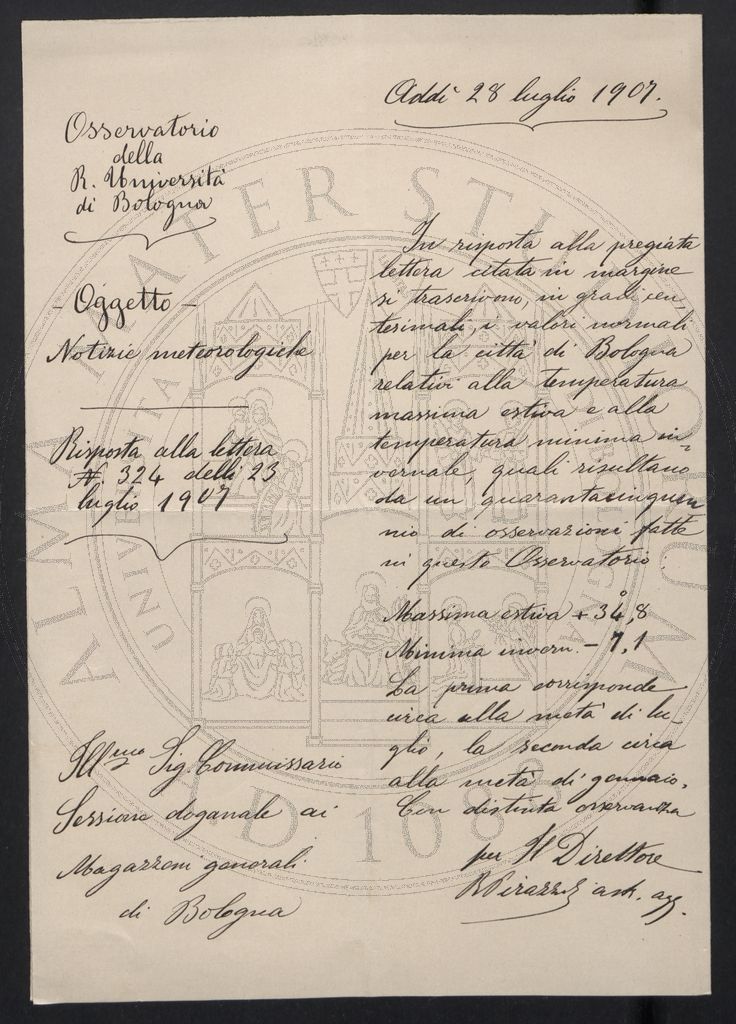 Addì 28 luglio 1907.
Osservatorio
della
R. Università
di Bologna
- Oggetto -
Notizie meteorologiche
Risposta alla lettera
N. 324 delli 23
luglio 1907
In risposta alla pregiata
lettera citata in margine
si trascrivono, in gradi cen-
tesimali, i valori normali
per la città di Bologna
relativi alla temperatura
massima estiva e alla
temperatura minima in-
vernale, quali risultano
da un quarantacinquen
nio di osservazioni fatte
in questo Osservatorio:
Massima estiva + 34°,8
Minima invern. - 7,1
La prima corrisponde
circa alla metà di lu-
glio, la seconda circa
alla metà di gennaio.
Con distinta osservanza
per Il Direttore
ast. agg.
Ill.mo Sig. Commissario
Sessione doganale ai
Magazzeni generali
di Bologna
ALMA MATER STUDIORUM
A.D. 1088